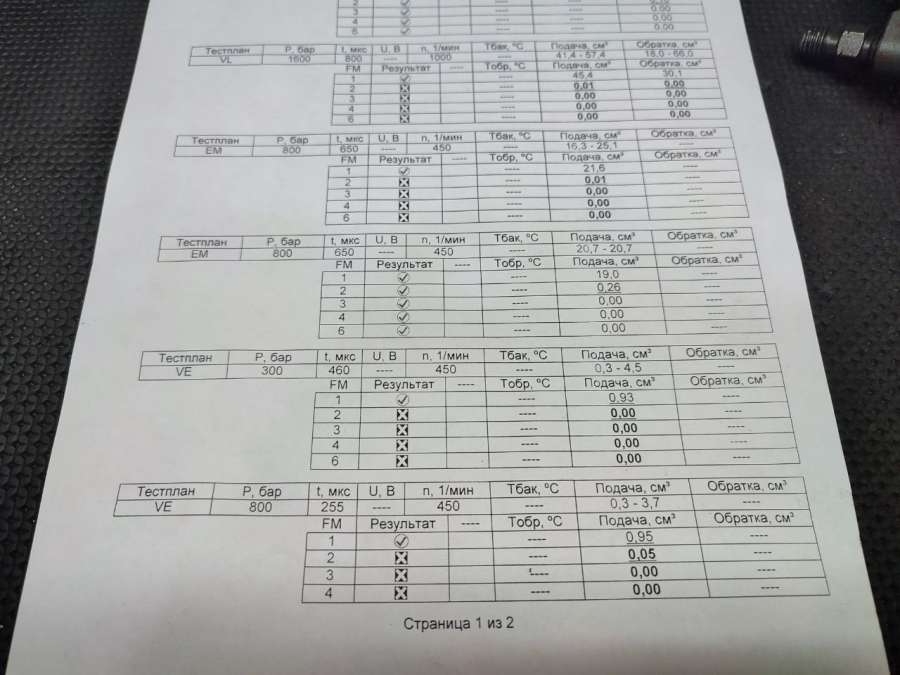 2
3 0.00
4 0.00
6 0.00
Тестплан P, бар t, мкс U, В n, 1/мин Тбак, °C Подача, см³ Обратка, см³
VL 1600 800 ---- 1000 ---- 41,4 - 57,4 18,0 - 66,0
FM Результат ---- Тобр, °C Подача, см³ Обратка, см³
1 ---- 45,4 30,1
2 ---- 0,01 0,00
3 ---- 0,00 0,00
4 ---- 0,00 0,00
6 ---- 0,00 0,00
Тестплан P, бар t, мкс U, В n, 1/мин Тбак, °C Подача, см³ Обратка, см³
EM 800 650 ---- 450 ---- 16,3 - 25,1 ----
FM Результат ---- Тобр, °C Подача, см³ Обратка, см³
1 ---- 21,6 ----
2 ---- 0,01 ----
3 ---- 0,00 ----
4 ---- 0,00 ----
6 ---- 0,00 ----
Тестплан P, бар t, мкс U, В n, 1/мин Тбак, °C Подача, см³ Обратка, см³
EM 800 650 ---- 450 ---- 20,7 - 20,7 ----
FM Результат ---- Тобр, °C Подача, см³ Обратка, см³
1 ---- 19,0 ----
2 ---- 0,26 ----
3 ---- 0,00 ----
4 ---- 0,00 ----
6 ---- 0,00 ----
Тестплан P, бар t, мкс U, В n, 1/мин Тбак, °C Подача, см³ Обратка, см³
VE 300 460 ---- 450 ---- 0,3 - 4,5 ----
FM Результат ---- Тобр, °C Подача, см³ Обратка, см³
1 ---- 0,93 ----
2 ---- 0,00 ----
3 ---- 0,00 ----
4 ---- 0,00 ----
6 ---- 0,00 ----
Тестплан P, бар t, мкс U, В n, 1/мин Тбак, °C Подача, см³ Обратка, см³
VE 800 255 ---- 450 ---- 0,3 - 3,7 ----
FM Результат ---- Тобр, °C Подача, см³ Обратка, см³
1 ---- 0,95 ----
2 ---- 0,05 ----
3 ---- 0,00 ----
4 ---- 0,00 ----
Страница 1 из 2